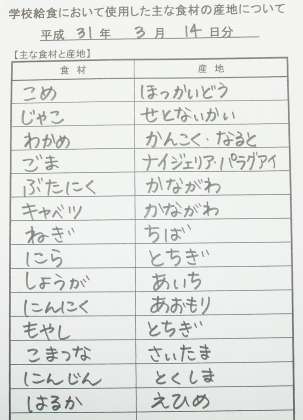 学校給食において使用した主な食材の産地について
平成 31 年 3 月 14 日分
【主な食材と産地】
食材 産地
こめ ほっかいどう
じゃこ せとないかい
わかめ かんこく・なると
ごま ナイジェリア・パラグアイ
ぶたにく かながわ
キャベツ かながわ
ねぎ ちば
にら とちぎ
しょうが あいち
にんにく あおもり
もやし とちぎ
こまつな さいたま
にんじん とくしま
はるか えひめ